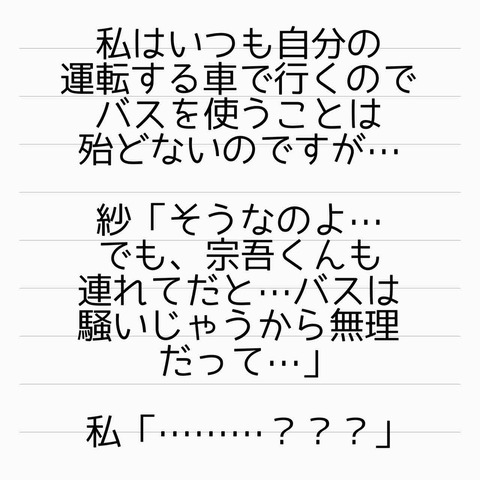 私はいつも自分の
運転する車で行くので
バスを使うことは
殆どないのですが…
紗「そうなのよ…
でも、宗吾くんも
連れてだと…バスは
騒いじゃうから無理
だって…」
私「………？？？」